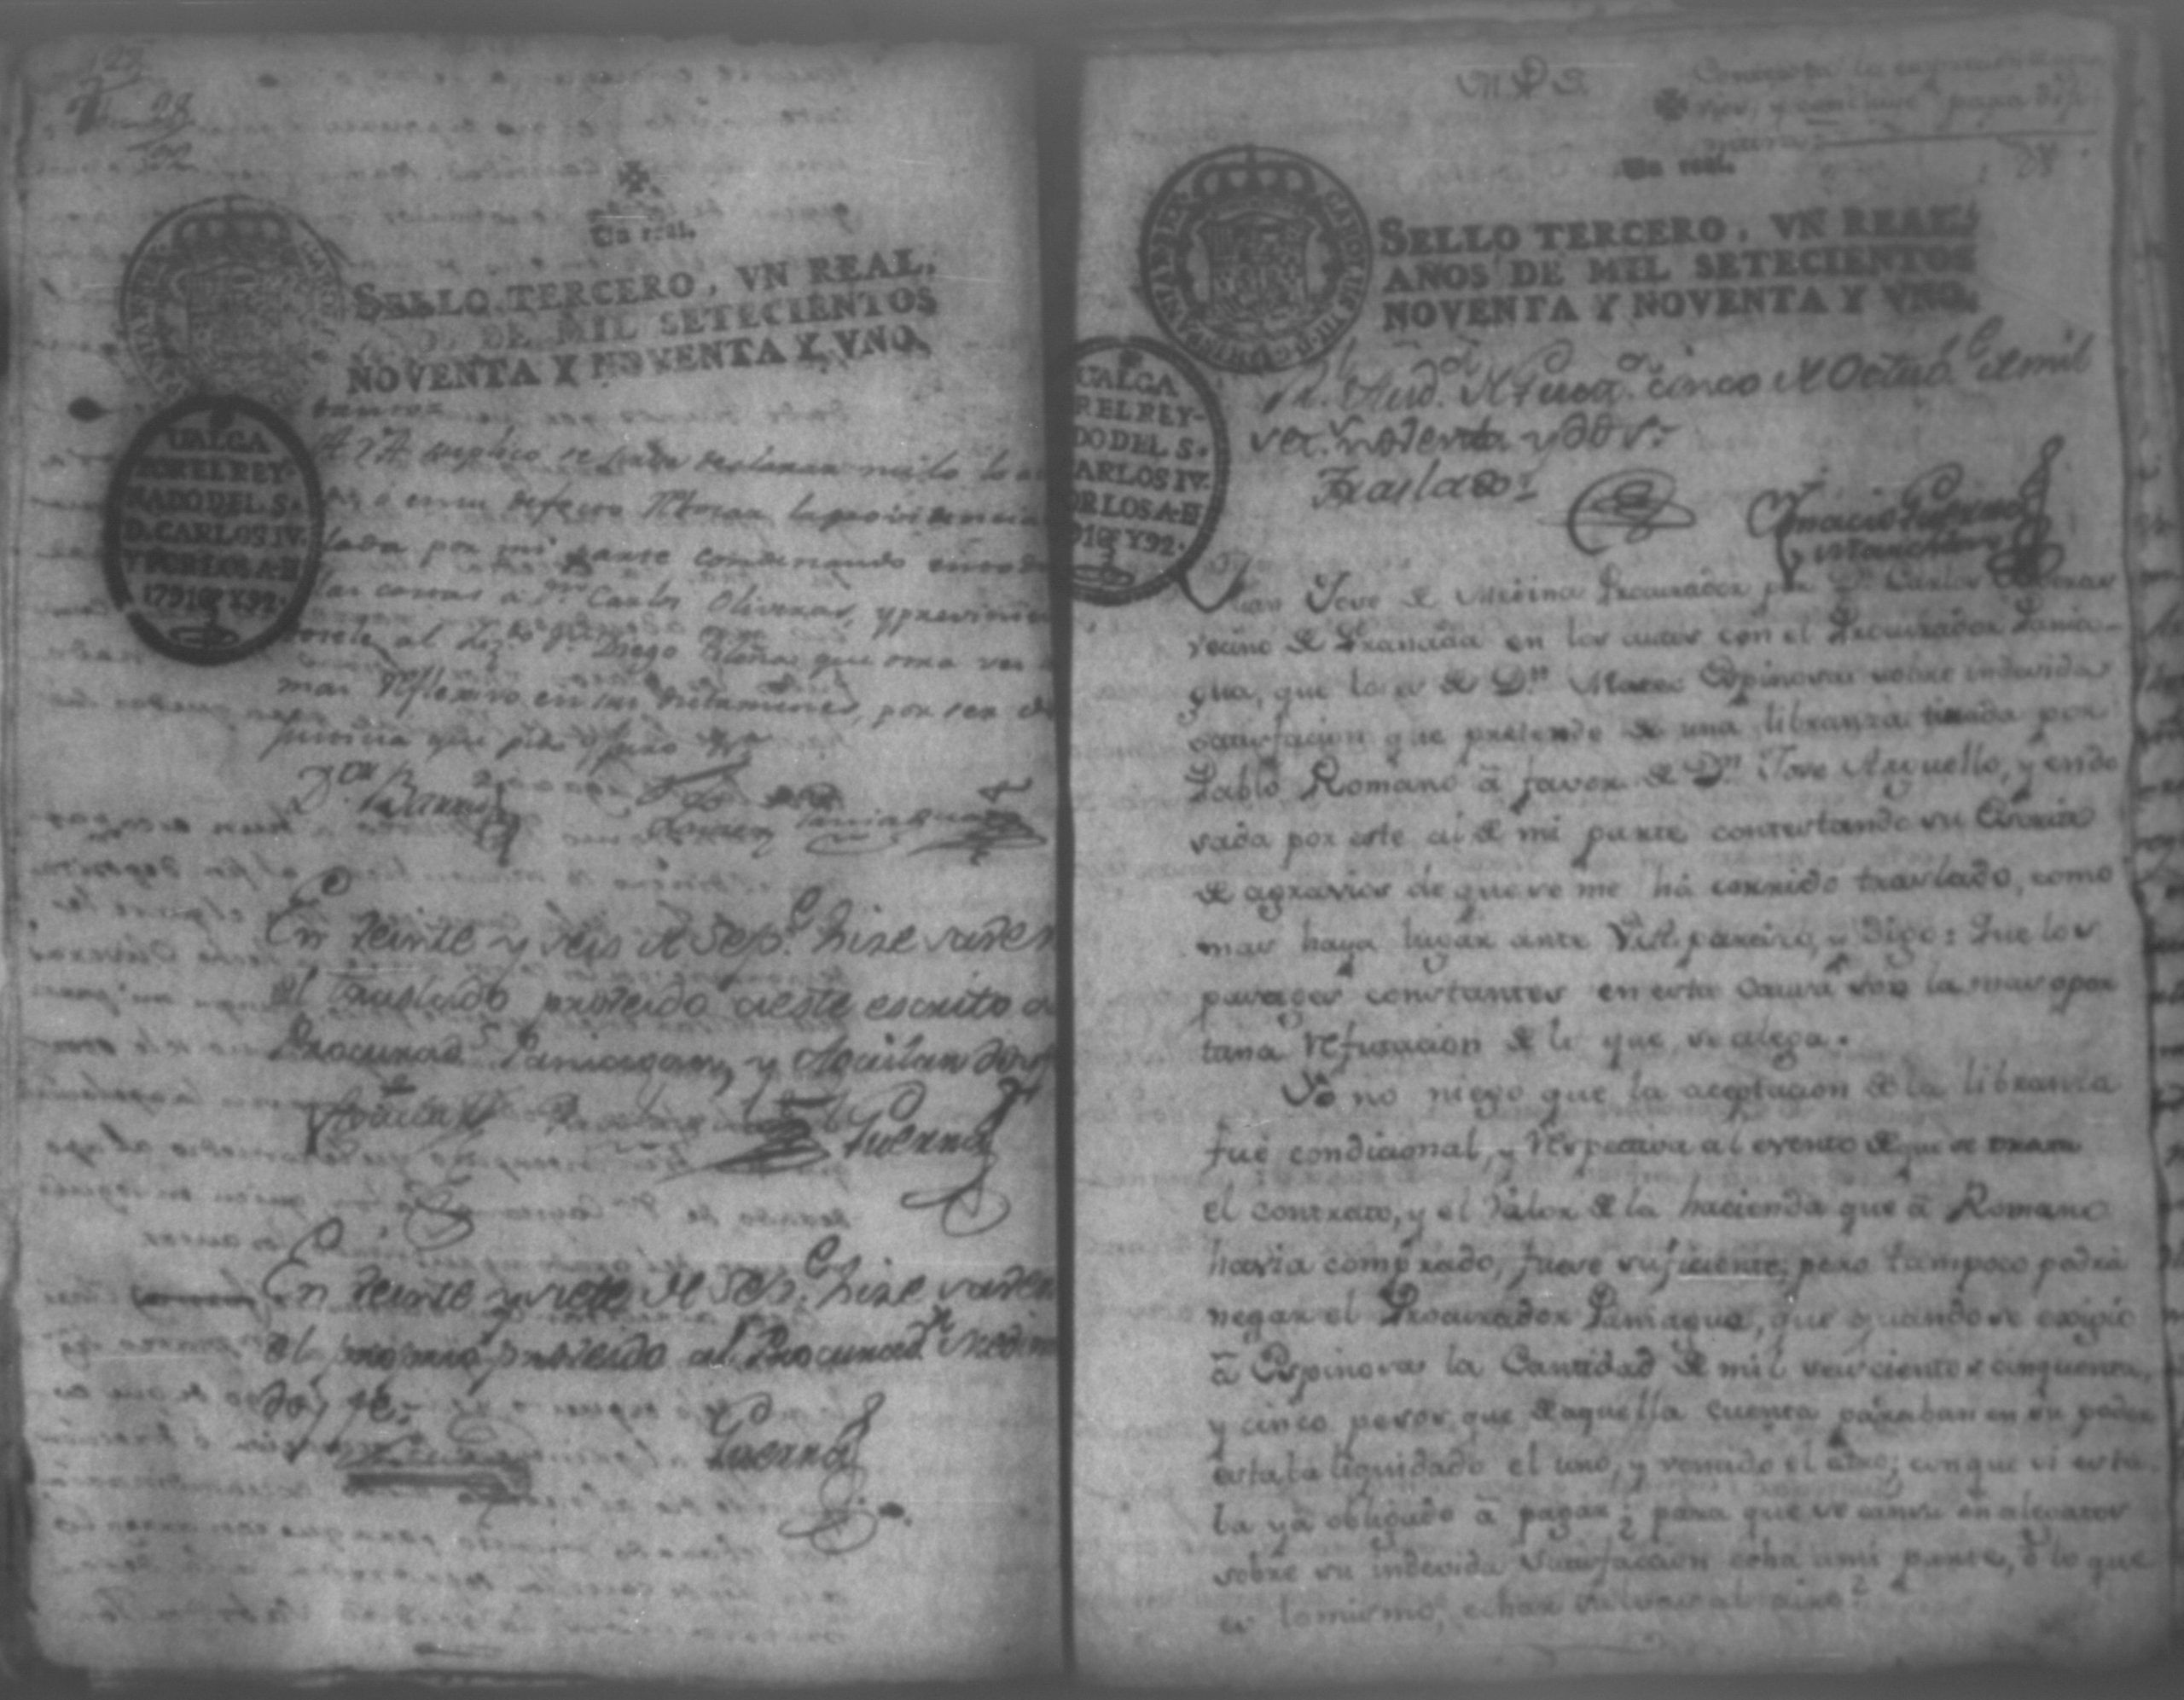 Un real.
SELLO TERCERO, VN REAL,
DE MIL SETECIENTOS
NOVENTA Y NOVENTA Y VNO.
VALGA
POR EL REY-
NADO DEL S.
D. CARLOS IV.
Y POR LOS A.
1791 Y 92.
A VA suplico se sirva declarar nulo lo
ó en su defecto Rebocar la providencia
lada por mi parte condenando en to
las costas á Dn. Carlos Oliveras, y previnien
sele al Liz.do Dn. Diego Piloña, que otra vez
mas Reflexivo en sus dictamenes, por ser de
justicia que pido y juro
En veinte y seis de Sep.e hize saver
el traslado proveido a este escrito a
Procurad.s Paniagua, y Aguilar doy
Aguilar Paniagua Guerra
En veinte y siete de Sep.e hize saver
el propio proveido al Procurad.r Medina
doy fe.
Guerra
M P S.
Contexta la expresion de agra
vios, y concluye para difi
nitiva.
Un real.
SELLO TERCERO, VN REAL,
AÑOS DE MIL SETECIENTOS
NOVENTA Y NOVENTA Y VNO.
VALGA
R EL REY-
DO DEL S.
CARLOS IV.
OR LOS A.
91 Y 92.
Rl. Aud.a de Guat.a cinco de Octub.e de mil
set.s noventa y dos.
Traslado:
Ignacio Guerra
y Marchan
Juan Jose de Medina Procurador por Dn. Carlos Oliveras
vecino de Granada en los autos con el Procurador Pania-
gua, que lo es de Dn. Mateo Espinosa sobre indevida
satisfacion que pretende de una libranza tirada por
Pablo Romano á favor de Dn. Jose Arguello, y endo
sada por este al de mi parte contextando su Escrito
de agravios de que se me há corrido traslado, como
mas haya lugar ante V.A. paresco, y digo: Que los
pasages constantes en esta causa son la mas opor
tuna Refutacion de lo que se alega.
Yo no niego que la aceptacion de la libranza
fué condicional, y Respectiva al evento de que se
el contrato, y el valor de la hacienda que á Romano
havia comprado, fuese suficiente; pero tampoco podrá
negar el Procurador Paniagua, que quando se exigio
á Espinosa la Cantidad de mil seiscientos cinquenta,
y cinco pesos que de aquella cuenta paraban en su poder
estaba liquidado el uno, y venido el otro; con que si esta
ba yá obligado á pagar, para que se cansa en alegatos
sobre su indevida satisfaccion echa á mi parte, ó lo que
es lo mismo, echar al aire?